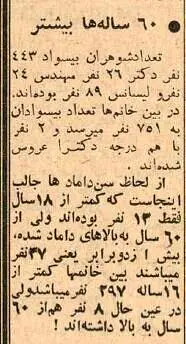 ۶۰ ساله‌ها بیشتر
تعدادشوهران بیسواد ۴۴۳
نفر دکتر ۲۶ نفر مهندس ۲۴
نفرو لیسانس ۸۹ نفر بوده‌اند.
در بین خانم‌ها تعداد بیسوادان
به ۷۵۱ نفر میرسد و ۲ نفر
با هم درجه دکتـرا عروس
شده‌اند.
از لحاظ سن‌داماد ها جالب
اینجاست که‌کمتر از ۱۸سال
فقط ۱۳ نفر بوده‌اند ولی از
۶۰ سال به‌بالاهای داماد شده،
بیش از دوبرابر یعنی ۳۷نفر
میباشند بین خانمها کمتر از
۱۶ساله ۲۹۷ نفرمیباشدولی
در عین حال ۸ نفر هم‌از ۶۰
سال به بالا داشته‌اند !